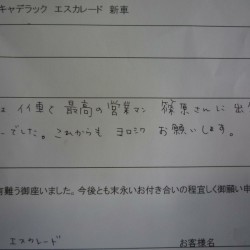 キャデラック エスカレード 新車
イイ車と 最高の営業マン 篠原さんに 出
でした。これからも ヨロシク お願いします。
有難う御座いました。今後とも末永いお付き合いの程宜しく御願い申
エスカレード
お客様名